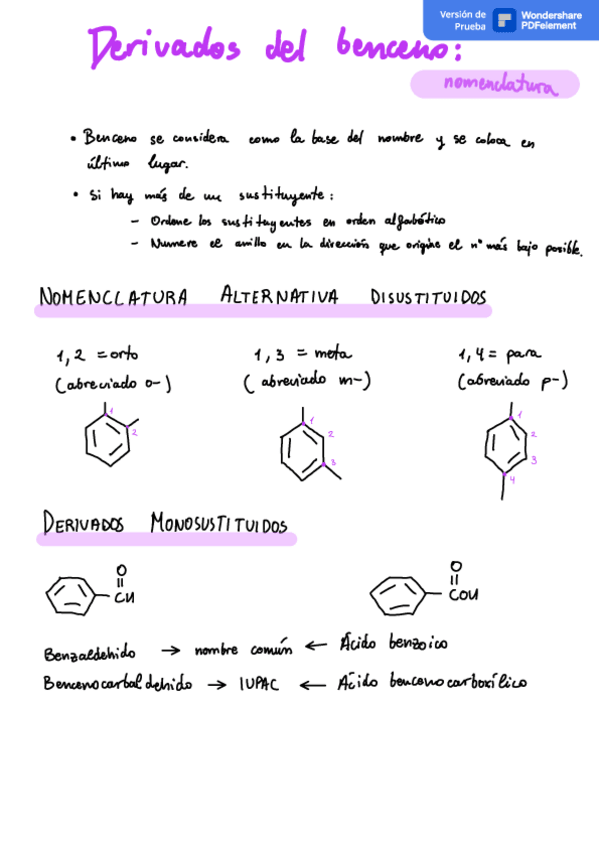 Versión de Prueba Wondershare PDFelement
Derivados del benceno:
nomenclatura
• Benceno se considera como la base del nombre y se coloca en
último lugar.
• Si hay más de un sustituyente:
– Ordene los sustituyentes en orden alfabético
– Numere el anillo en la dirección que origine el nº más bajo posible.
NOMENCLATURA ALTERNATIVA DISUSTITUIDOS
1,2 = orto 1,3 = meta 1,4 = para
(abreviado o-) (abreviado m-) (abreviado p-)
1 1 1
2 2 2
3 3
4
DERIVADOS MONOSUSTITUIDOS
O O
CH COH
Benzaldehido → nombre común ← Ácido benzoico
Bencenocarbaldehido → IUPAC ← Ácido bencenocarboxílico